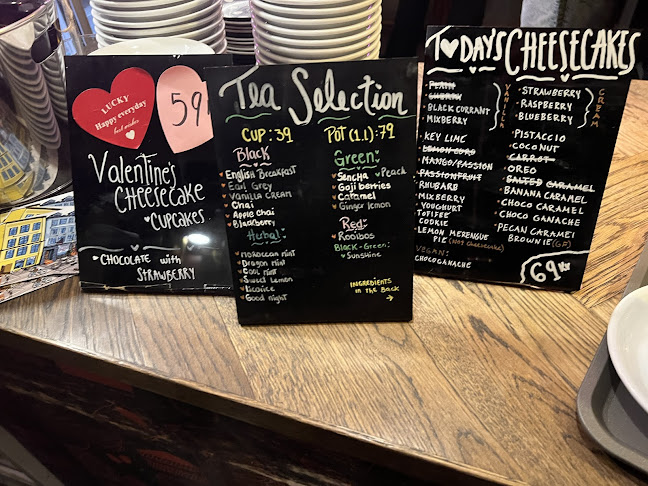 LUCKY
Happy everyday
best wishes
59
Valentine's
CHEESECAKE
CUPCAKES
CHOCOLATE with
STRAWBERRY
Tea Selection
CUP : 39
POT (1.L) : 79
Black
English Breakfast
Earl Grey
Vanilla CREAM
Chai
Apple Chai
Blackberry
Herbal
Moroccan mint
Dragon mint
Cool mint
Sweet Lemon
Licorice
Good night
Green
Sencha
Peach
Goji berries
Caramel
Ginger lemon
Red
Rooibos
Black + Green
Sunshine
INGREDIENTS
in the Back
TODAYS CHEESECAKES
BLACK CURRANT
MIXBERRY
VANILLA
KEY LIME
MANGO/PASSION
PASSIONFRUIT
RHUBARB
MIXBERRY
YOUGHURT
TOFIFEE
COOKIE
LEMON MERENGUE
PIE (Not cheesecake)
VEGAN:
CHOCOGANACHE
STRAWBERRY
RASPBERRY
BLUEBERRY
CREAM
PISTACCIO
COCONUT
CARROT
OREO
SALTED CARAMEL
BANANA CARAMEL
CHOCO CARAMEL
CHOCO GANACHE
PECAN CARAMEL
BROWNIE (GF)
69kr